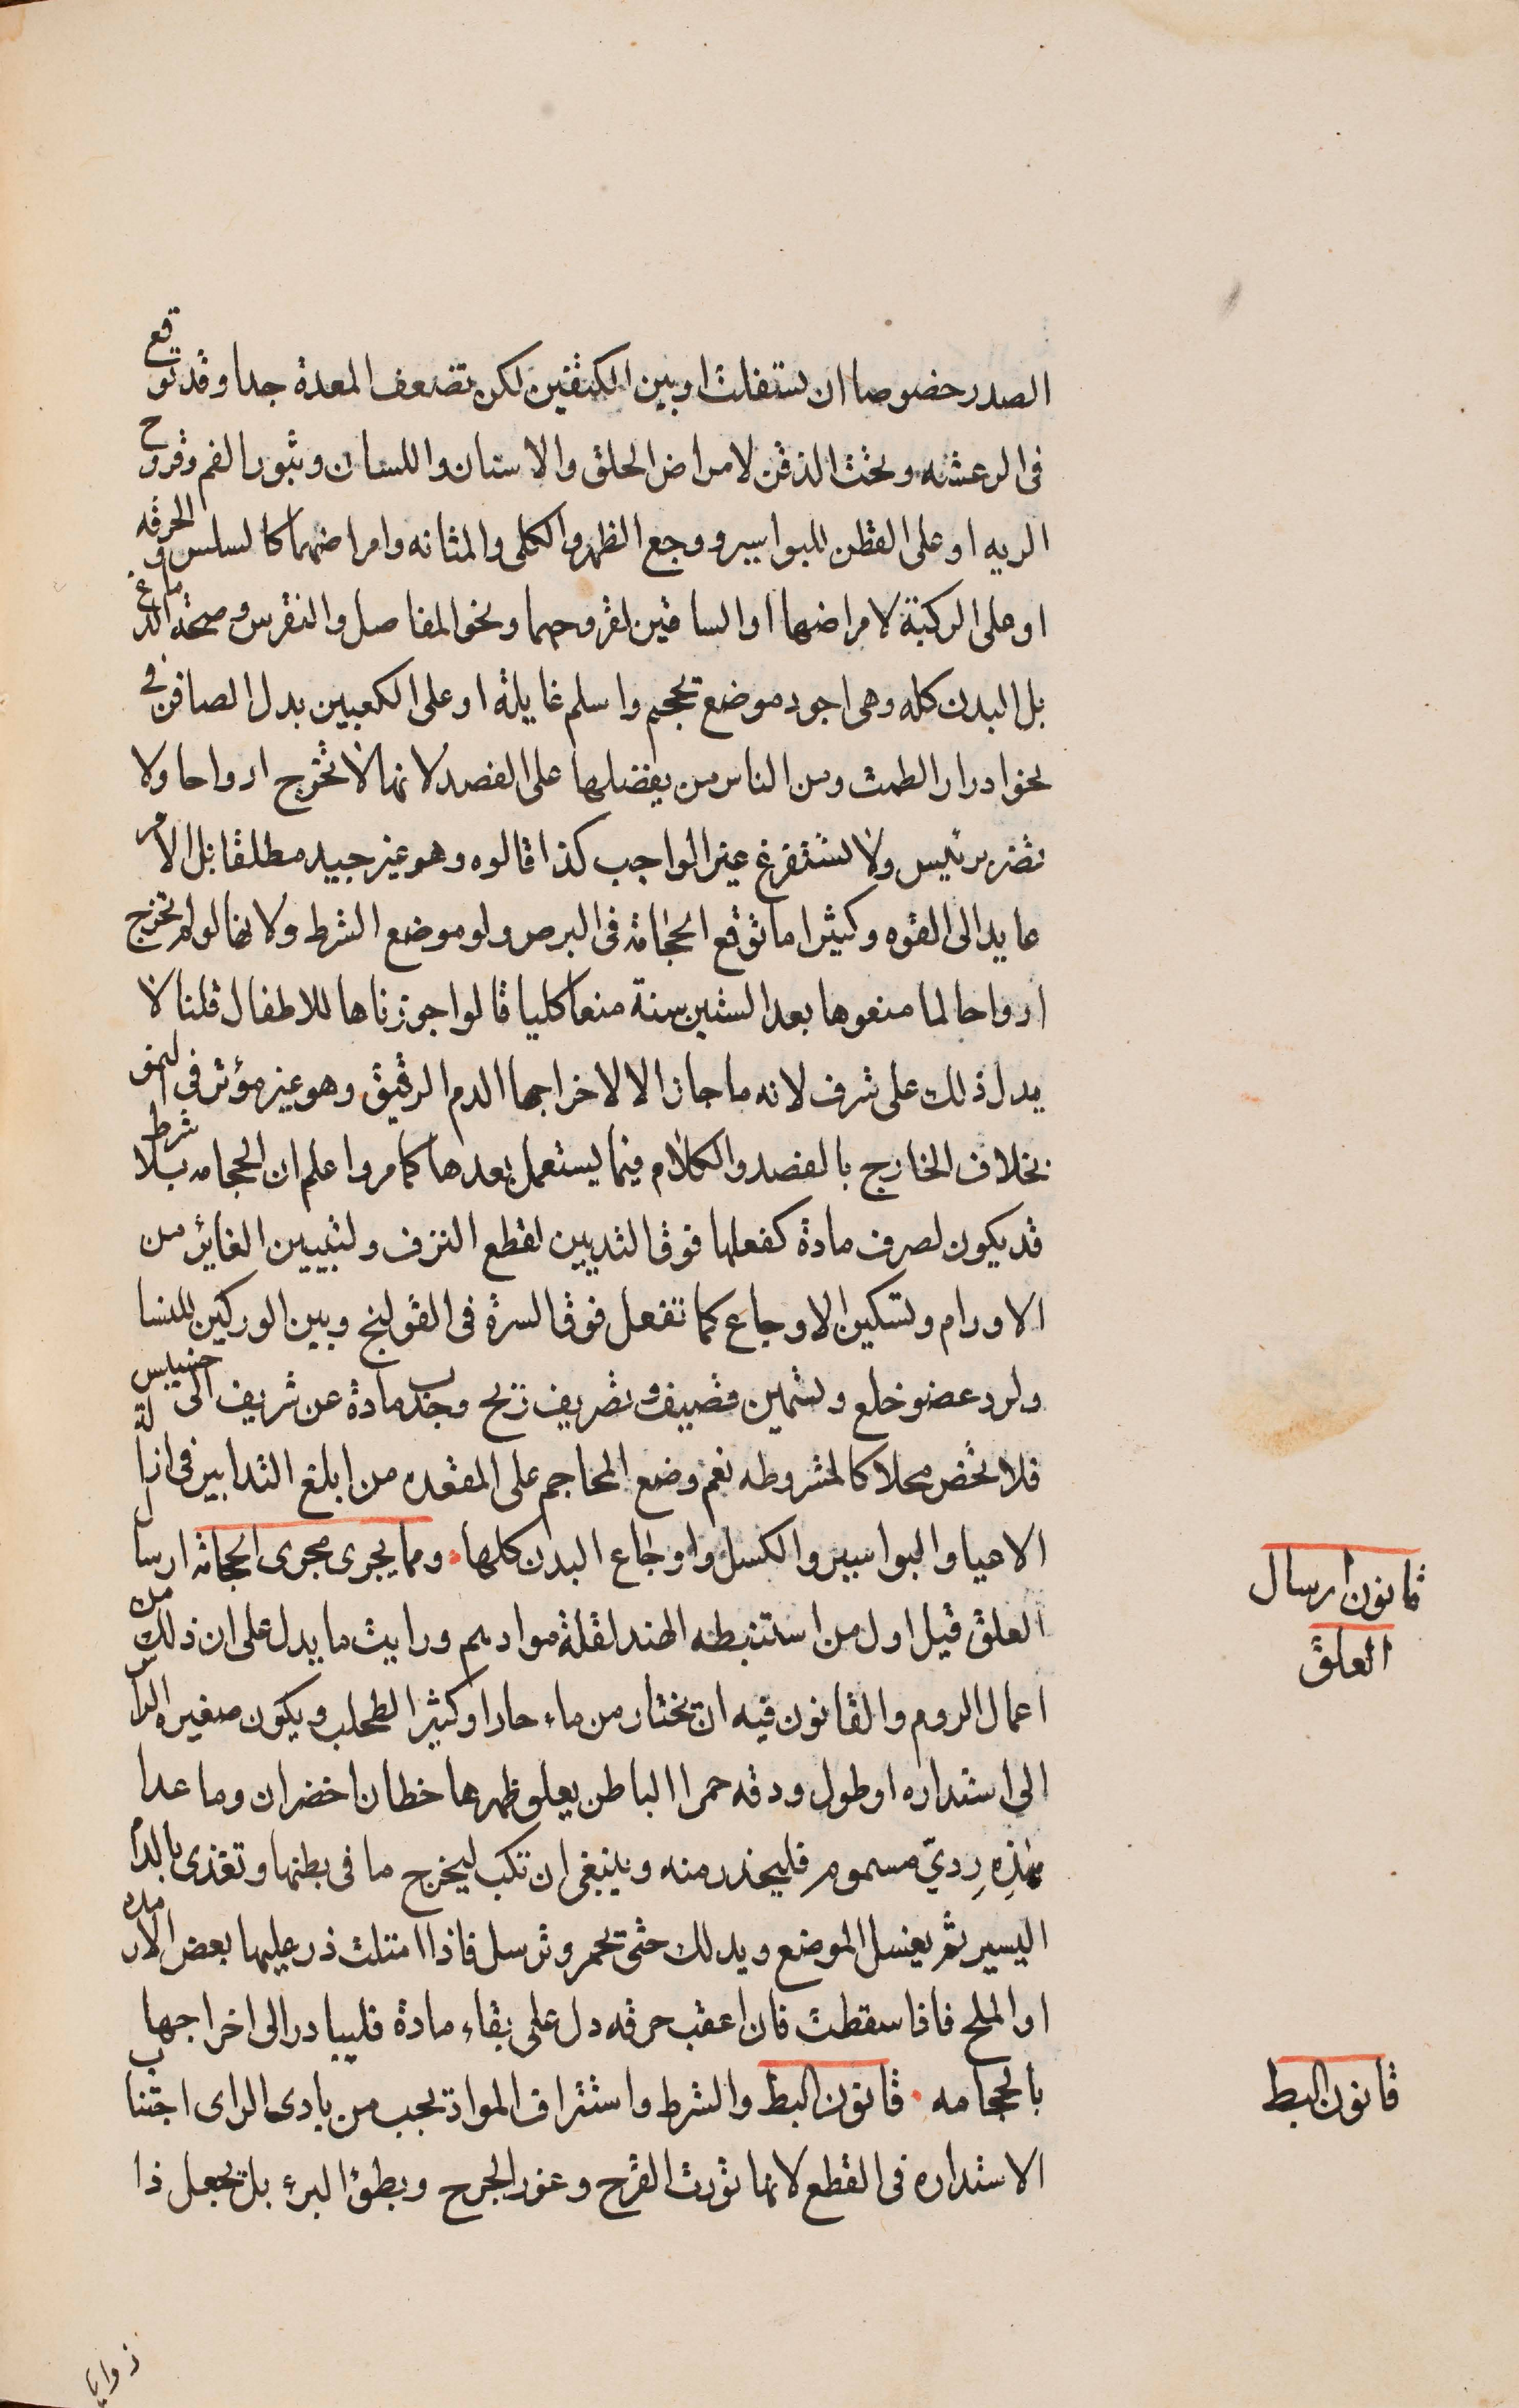 الصدر خصوصا ان تسفلت او بين الكتفين لكن تضعف المعدة جدا وقد توقع
فى الرعشه وتحت الذقن لامراض الحلق والاسنان واللسان وبثور الفم وقروح
الريه او على القطن للبواسير ووجع الظهر والكلى والمثانه وامراضهما كالسلس والحرقه
او على الركبة لامراضها او الساقين لقروحهما ونحو المفاصل والنقرس وصحة الدماغ
بل البدن كله وهى اجود موضع تحجم واسلم غايلة او على الكعبين بدل الصافن فى
نحو ادرار الطمث ومن الناس من يفضلها على الفصد لانها لا تخرج ارواحا ولا
تضر برئيس ولا تستفرغ غير الواجب كذا قالوه وهو غير جيد مطلقا بل الامر
عايد الى القوه وكثيرا ما توقع الحجامة فى البرص ولو موضع الشرط ولانها لو لم تخرج
ارواحا لما منعوها بعد الستين سنة منعا كليا قالوا جوزناها للاطفال قلنا لا
يدل ذلك على شرف لانه ما جاز الا لاخراجها الدم الرقيق وهو غير مؤثر فى النمو
بخلاف الخارج بالفصد والكلام فيما يستعمل بعدها كما مر واعلم ان الحجامه بلا شرط
قد يكون لصرف مادة كفعلها فوق الثديين لقطع النزف ولتبيين الغائر من
الاورام ولتسكين الاوجاع كما تفعل فوق السرة فى القولنج وبين الوركين للنسا
ولرد عضو خلع وتسمين قضيف وتصريف ريح وجذب مادة عن شريف الى خسيس
فلا تخص محلا كالمشروطه نعم وضع المحاجم على المقعده من ابلغ التدابير فى ازالة
الاعيا والبواسير والكسل واوجاع البدن كلها • ومما يجرى مجرى الحجامة ارسال
العلق قيل اول من استنبطه الهند لقلة موادهم ورايت ما يدل على ان ذلك من
اعمال الروم والقانون فيه ان تختار من ماء حار او كثير الطحلب ويكون صغيره الراس
الى استداره او طول ودقه حمرا الباطن يعلو ظهرها خطان اخضران وما عدا
هٰذِهِ رديّ مسموم فليحذر منه وينبغى ان تكب ليخرج ما فى بطنها وتغذى بالدم
اليسير ثم يغسل الموضع ويدلك حتى تحمر وترسل فاذا امتلت ذر عليها بعض الارمدة
او الملح فاذا سقطت فان اعقب حرقه دل على بقاء مادة فليبادر الى اخراجها
بالحجامه • قانون البط والشرط واستنزاف المواد يجب من بادى الراى اجتناب
الاستداره فى القطع لانها تورث القرح وغور الجرح وبطؤ البرء بل تجعل ذا
زوايا
قانون ارسال
العلق
قانون البط